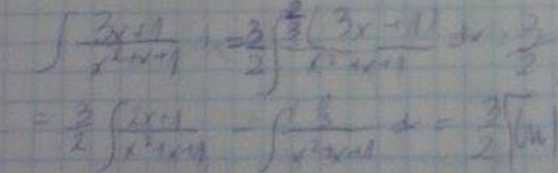 ∫ (3x+1)/(x²+x+1) = 3/2 ∫ (2/3(3x+1))/(x²+x+1) dx = 3/2
= 3/2 ∫ (2x+1)/(x²+x+1) - ∫ /(x²+x+1) = 3/2 [ln